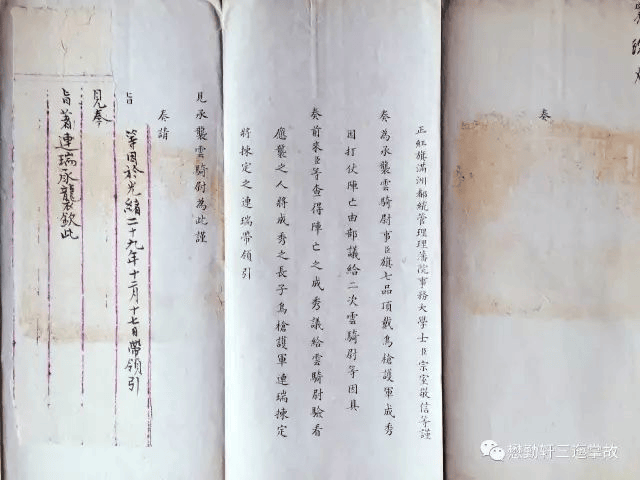 奏
正紅旗滿洲都統管理理藩院事務大學士臣宗室敬信等謹
奏為承襲雲騎尉事臣旗七品頂戴鳥槍護軍成秀
因打仗陣亡由部議給二次雲騎尉等因具
奏前來臣等查得陣亡之成秀議給雲騎尉驗看
應襲之人將成秀之長子鳥槍護軍連瑞揀定
將揀定之連瑞帶領引
見承襲雲騎尉為此謹
奏請
旨
等因於光緒二十九年十二月十七日帶領引
見奉
旨著連瑞承襲欽此
懋勤轩三迤掌故